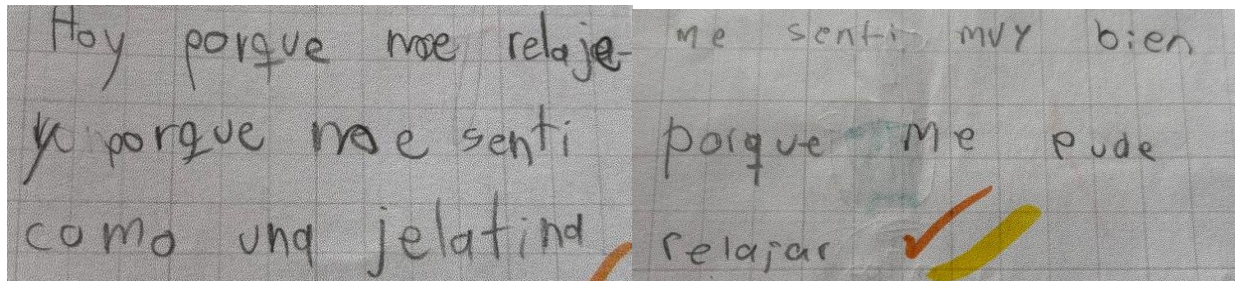 Hoy porque me relaje
yo porque me senti
como una jelatina
me senti muy bien
porque me pude
relajar